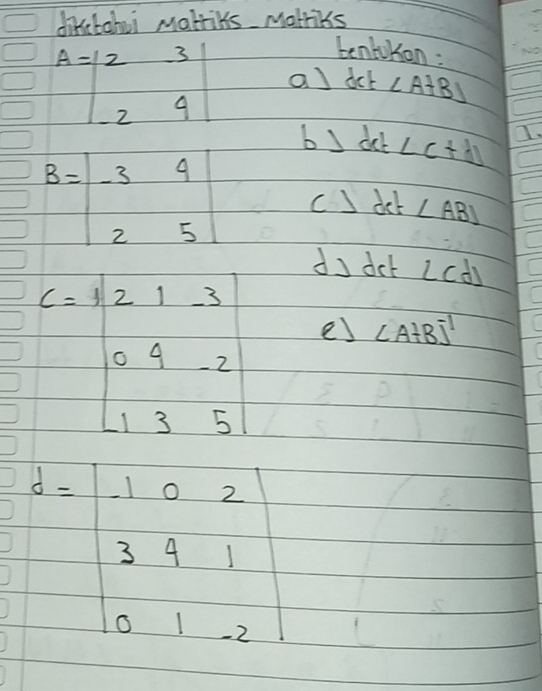 diketahui Matriks-Matriks
A = | 2 -3 |
| -2 4 |
B = | -3 4 |
| 2 5 |
C = | 2 1 -3 |
| 0 4 -2 |
| -1 3 5 |
d = | -1 0 2 |
| 3 4 1 |
| 0 1 -2 |
tentukan :
a) det (A+B)
b) det (C+d)
c) det (AB)
d) det (Cd)
e) (A+B)⁻¹